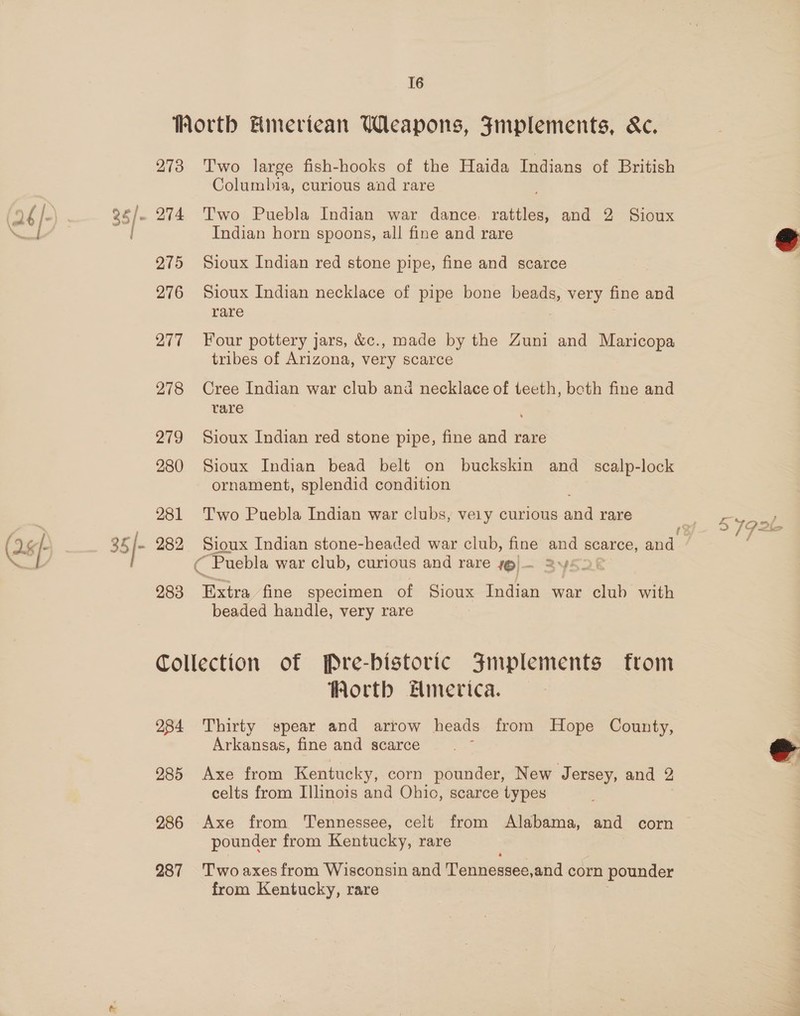 16
North American Weapons, Implements, &c.
273 Two large fish-hooks of the Haida Indians of British
Columbia, curious and rare
(26/-) 35/- 274 Two Puebla Indian war dance, rattles, and 2 Sioux
Indian horn spoons, all fine and rare
275 Sioux Indian red stone pipe, fine and scarce
276 Sioux Indian necklace of pipe bone beads, very fine and
rare
277 Four pottery jars, &c., made by the Zuni and Maricopa
tribes of Arizona, very scarce
278 Cree Indian war club and necklace of teeth, both fine and
rare
279 Sioux Indian red stone pipe, fine and rare
280 Sioux Indian bead belt on buckskin and scalp-lock
ornament, splendid condition
281 Two Puebla Indian war clubs, very curious and rare
(28/-) 35/- 282 Sioux Indian stone-headed war club, fine and scarce, and
Puebla war club, curious and rare
283 Extra fine specimen of Sioux Indian war club with
beaded handle, very rare
Collection of Pre-historic Implements from
North America.
284 Thirty spear and arrow heads from Hope County,
Arkansas, fine and scarce
285 Axe from Kentucky, corn pounder, New Jersey, and 2
celts from Illinois and Ohio, scarce types
286 Axe from Tennessee, celt from Alabama, and corn
pounder from Kentucky, rare
287 Two axes from Wisconsin and Tennessee,and corn pounder
from Kentucky, rare